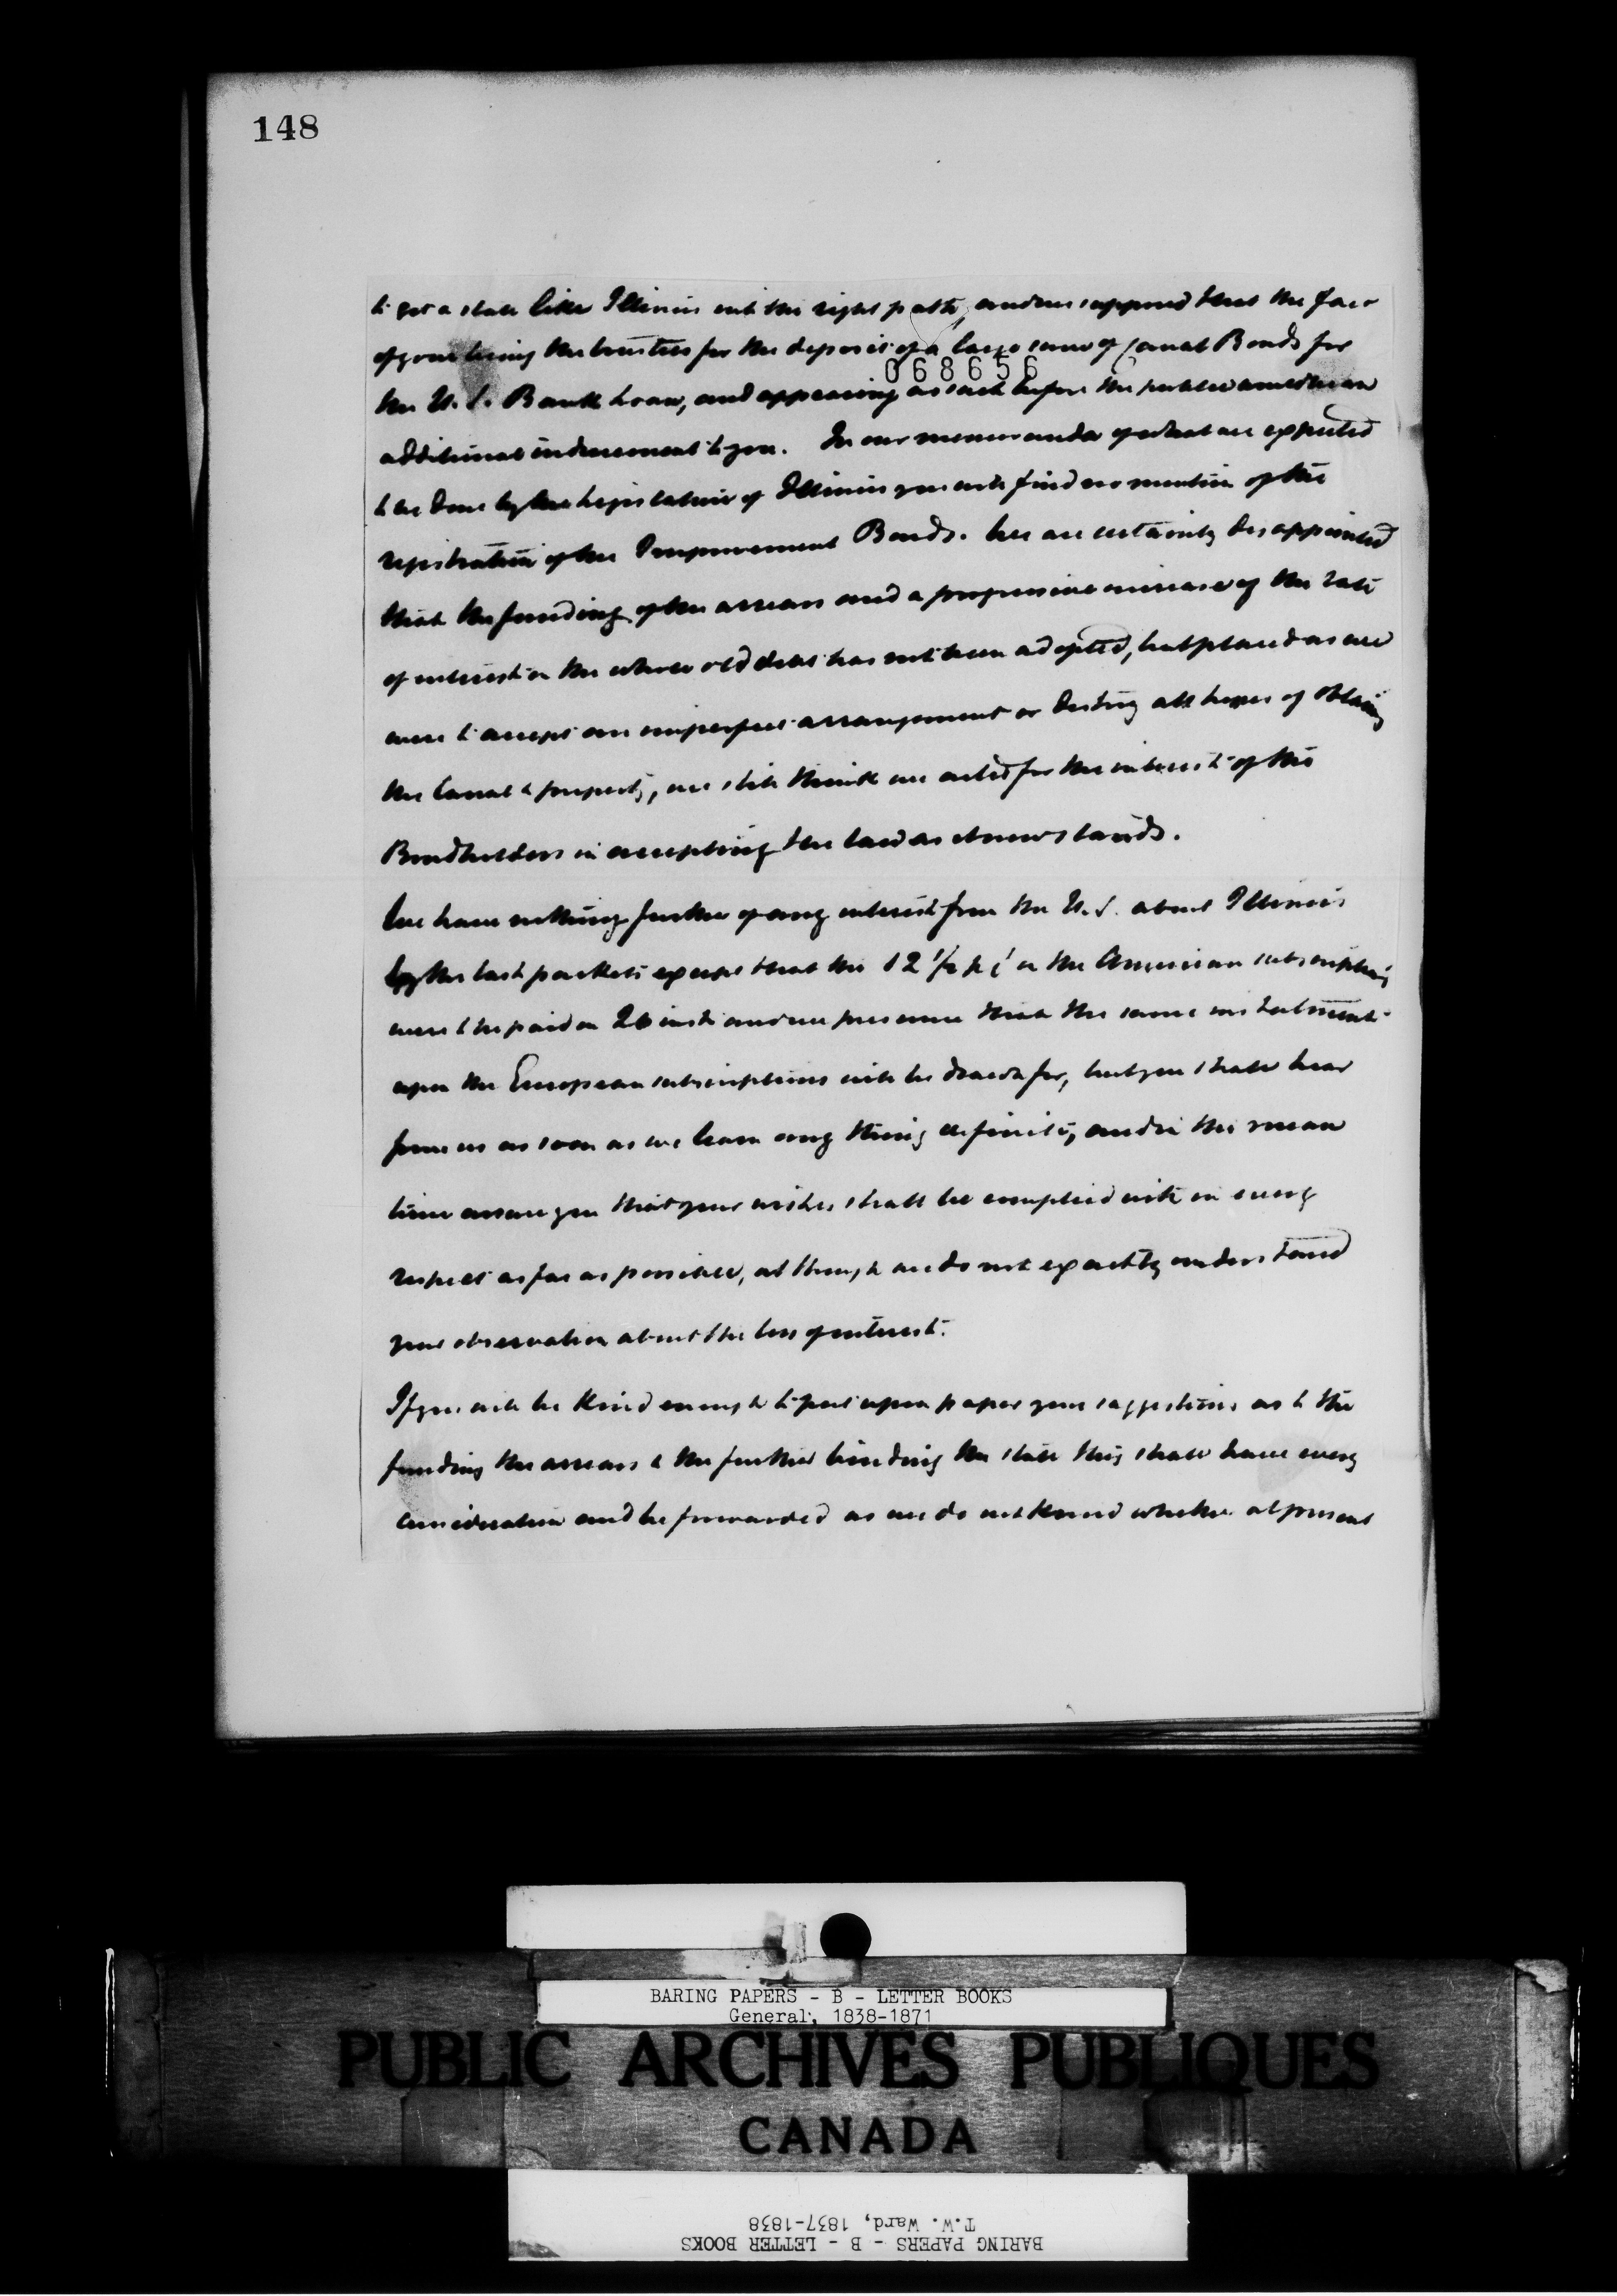 148
to get a state like Illinois into the right path, and we supposed that the fact
068656
of your being the trustees for the deposit of a large sum of Canal Bonds for
the U.S. Bank Loan, and appearing as such before the public would be an
additional inducement to you. In our memoranda of what we expected
to be done by the Legislature of Illinois you will find no mention of the
registration of the Improvement Bonds. We are certainly disappointed
that the funding of the arrears and a progressive increase of the rate
of interest on the whole old debt has not been adopted, but placed as we
were to accept an imperfect arrangement or destroy all hopes of obtaining
the Canal & property, we still think we acted for the interest of the
Bondholders in accepting the law as it now stands.
We have nothing further of any interest from the U.S. about Illinois
by the last packets except that the 12 1/2 p c on the American subscriptions
were to be paid on 26 inst and we presume that the same instalment
upon the European subscriptions will be drawn for, but you shall hear
from us as soon as we learn any thing definite, and in the mean
time assure you that your wishes shall be complied with in every
respect as far as possible, although we do not exactly understand
your observation about the loss of interest.
If you will be kind enough to put upon paper your suggestions as to the
funding the arrears & the further binding the state they shall have every
consideration and be forwarded as we do not know whether at present
BARING PAPERS - B - LETTER BOOKS
General, 1838-1871
PUBLIC ARCHIVES PUBLIQUES
CANADA
T.W. Ward, 1837-1838
BARING PAPERS - B - LETTER BOOKS